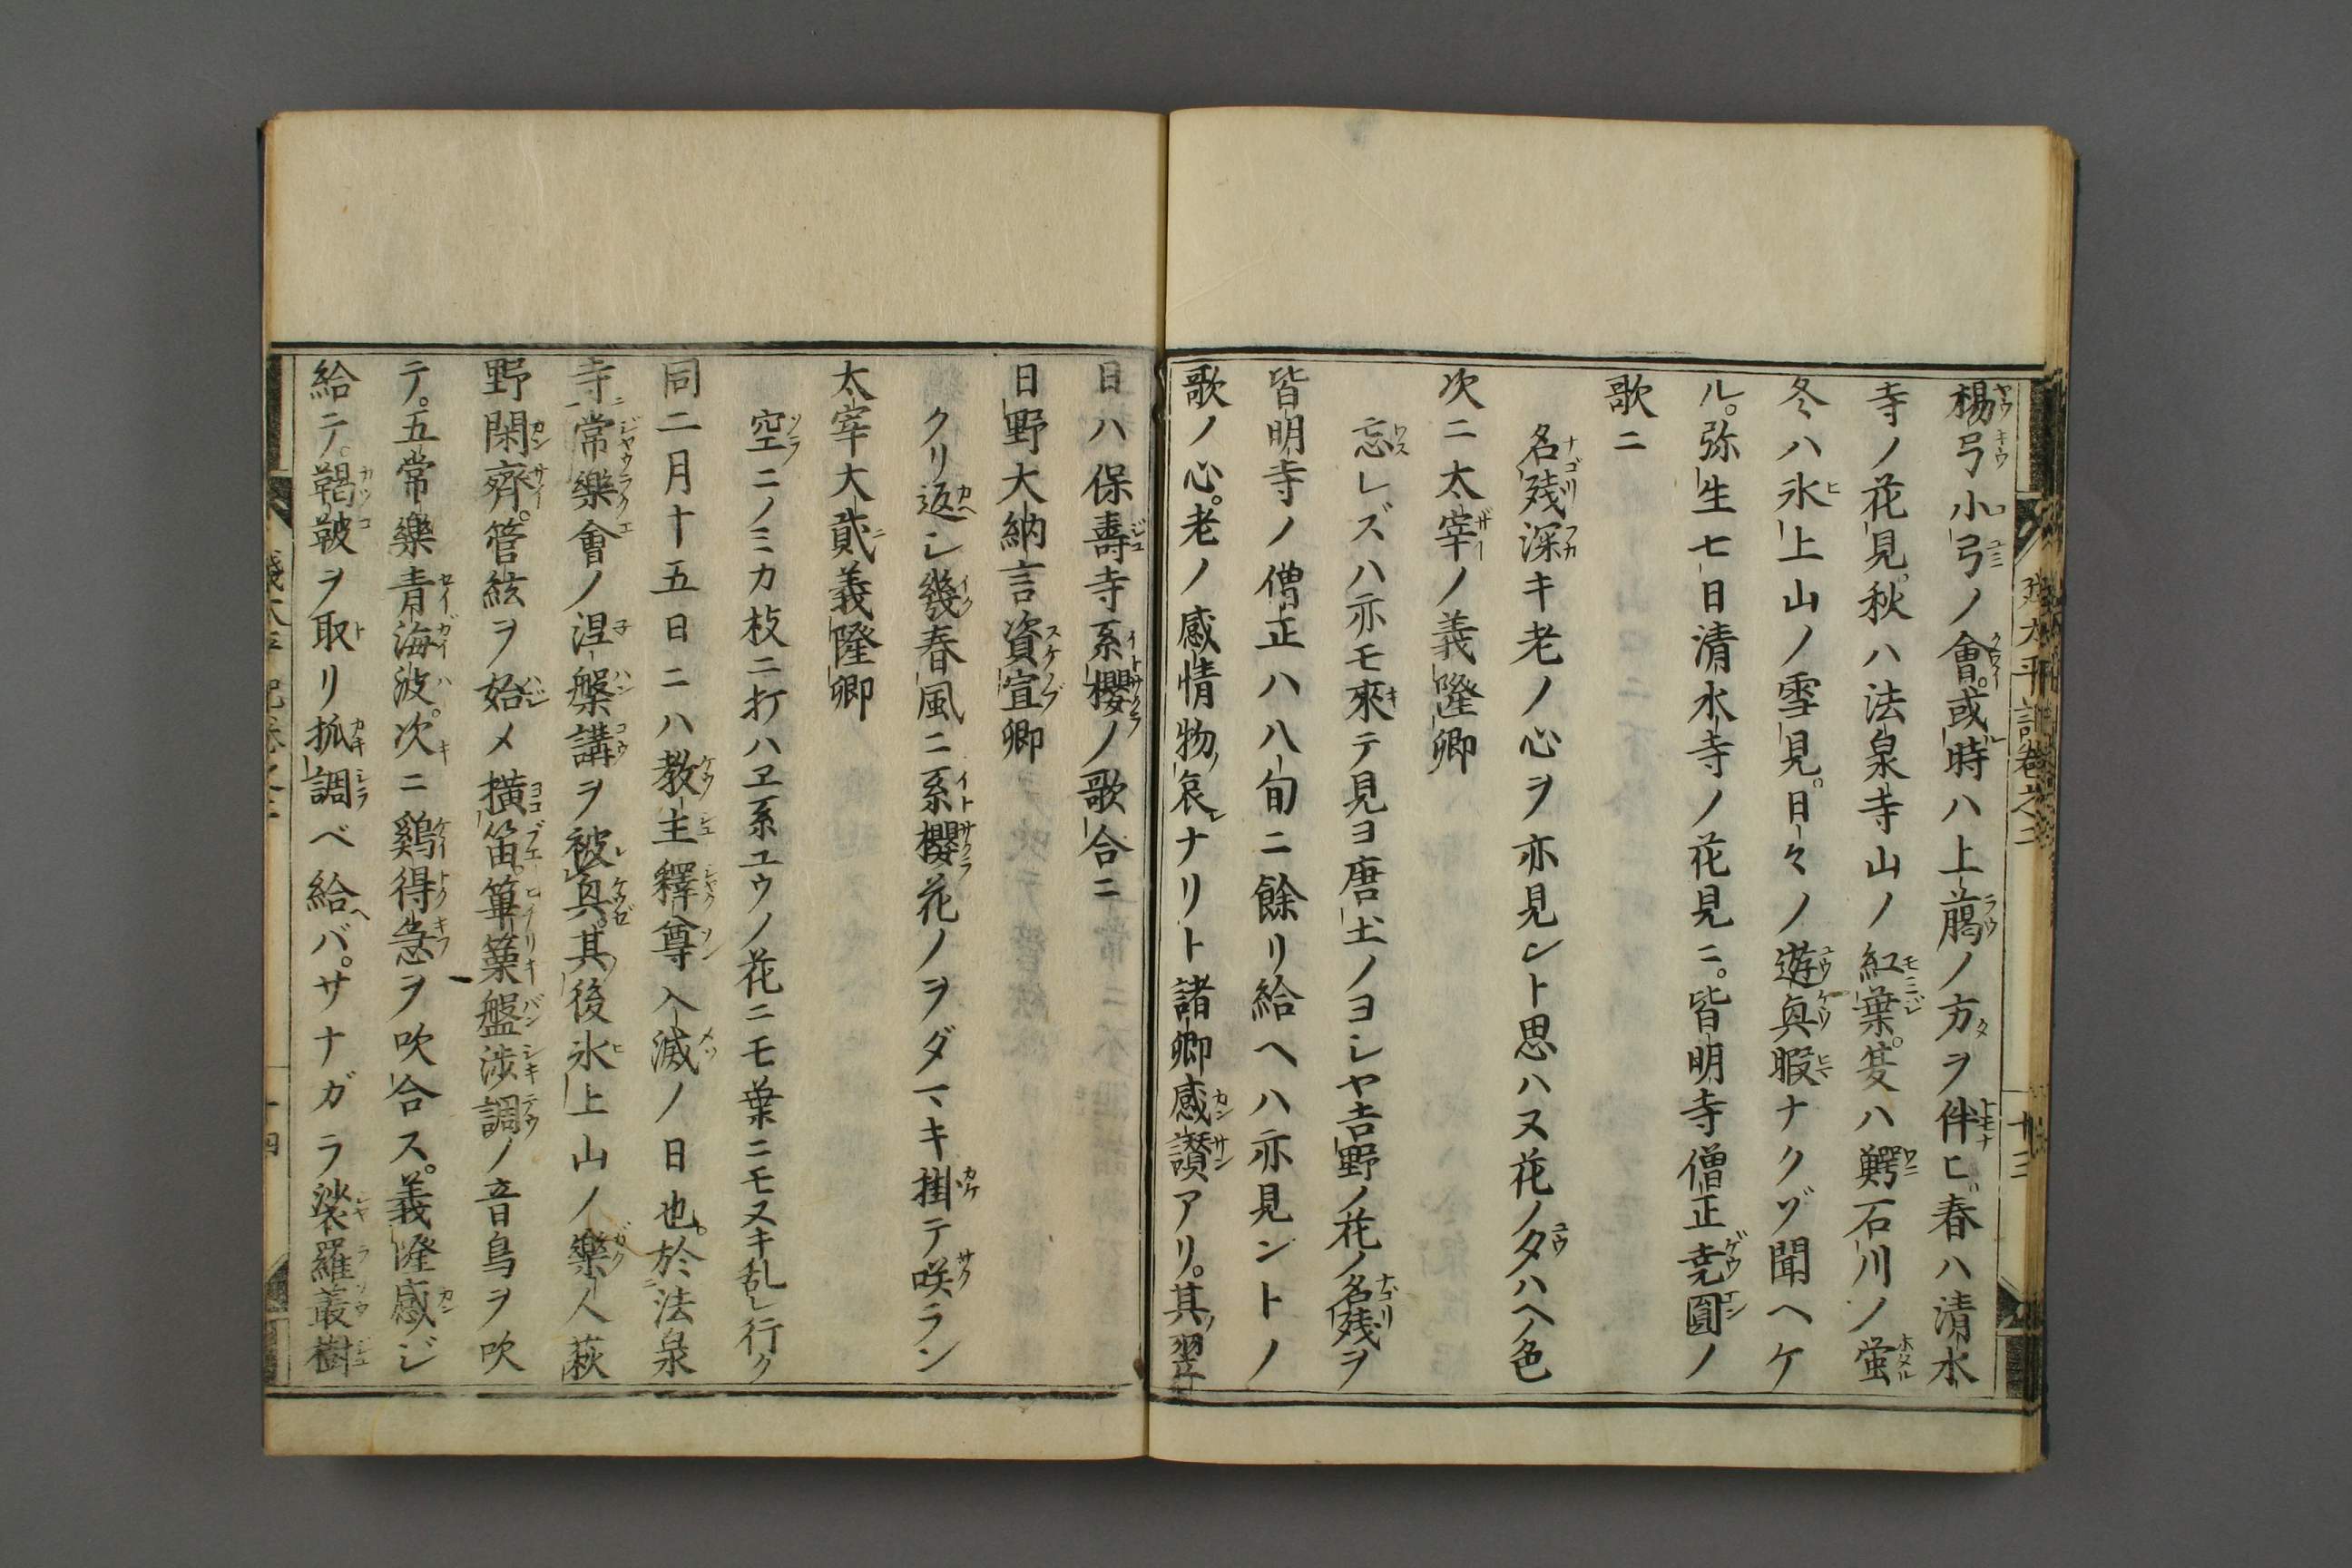 楊弓小弓ノ會。或時ハ上﨟ノ方ヲ伴ヒ。春ハ清水
寺ノ花見。秋ハ法泉寺山ノ紅葉。夏ハ鰐石川ノ蛍
冬ハ氷上山ノ雪見。日々ノ遊興暇ナクゾ聞ヘケ
ル。弥生七日清水寺ノ花見ニ。皆明寺僧正尭圓ノ
歌ニ
名残深キ老ノ心ヲ亦見ント思ハヌ花ノ夕ハヘノ色
次ニ太宰ノ義隆卿
忘レズハ亦モ來テ見ヨ唐土ノヨシヤ吉野ノ花ノ名残ヲ
皆明寺ノ僧正ハ八旬ニ餘リ給ヘハ亦見ントノ
歌ノ心。老ノ感情物哀ナリト諸卿感讃アリ。其翌
日ハ保壽寺系櫻ノ歌合ニ
日野大納言資宣卿
クリ返シ幾春風ニ系櫻花ノヲダマキ掛テ咲ラン
太宰大貳義隆卿
空ニノミカ枝ニ打ハヱ系ユウノ花ニモ葉ニモヌキ乱レ行ク
同二月十五日ニハ教主釋尊入滅ノ日也。於法泉
寺常樂會ノ涅槃講ヲ被興。其後氷上山ノ樂人萩
野閑齊。管絃ヲ始メ横笛。篳篥盤渉調ノ音鳥ヲ吹
テ。五常樂青海波。次ニ鷄得急ヲ吹合ス。義隆感ジ
給テ。鞨鞁ヲ取リ抓調ベ給ヘバ。サナガラ裟羅叢樹